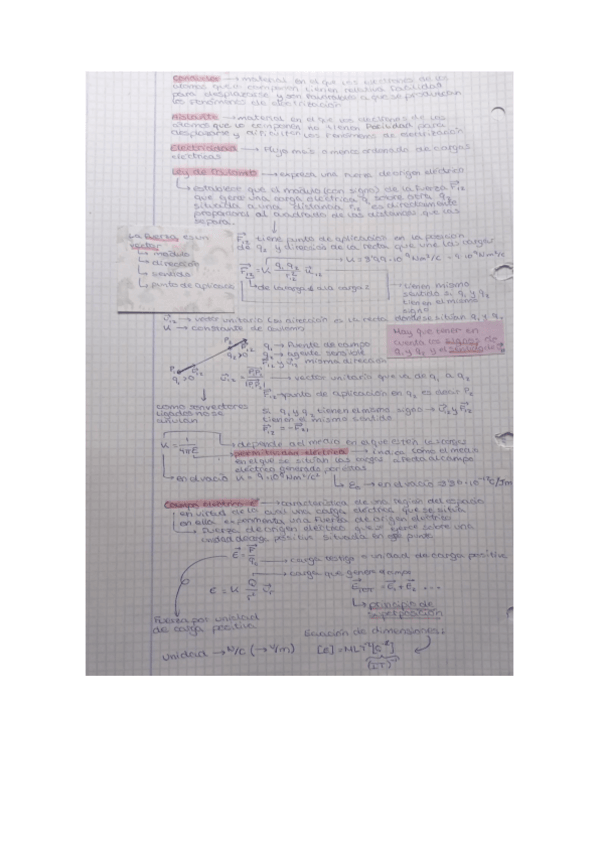 Conductor → material en el que los electrones de los
átomos que lo componen tienen relativa facilidad
para desplazarse y son materiales a que se produzcan
los fenómenos de electrización
Aislante → material en el que los electrones de los
átomos que lo componen no tienen facilidad para
desplazarse y dificultan los fenómenos de electrización
Electricidad → Flujo más o menos ordenado de cargas
eléctricas
Ley de Coulomb → expresa una fuerza de origen eléctrico
establece que el módulo (con signo) de la fuerza F₁₂
que ejerce una carga eléctrica q₁ sobre otra q₂
situada a una distancia r₁₂ es directamente
proporcional al cuadrado de las distancias que las
separa.
La fuerza es un
vector
módulo
dirección
sentido
punto de aplicación
F₁₂ tiene punto de aplicación en la posición
de q₂ y dirección de la recta que une las cargas
F₁₂ = K q₁ q₂ / r₁₂² u₁₂
de la carga 1 a la carga 2
tienen mismo
sentido si q₁ y q₂
tienen el mismo
signo
u₁₂ → vector unitario
K → constante de Coulomb
Hay que tener en
cuenta los signos de
q₁ y q₂ y el sentido
q₁ → fuente de campo
misma dirección
vector unitario que va de q₁ a q₂
F₁₂ → punto de aplicación en q₂ es decir P₂
Si q₁ y q₂ tienen el mismo signo → u₁₂ y F₁₂
tienen el mismo sentido
F₁₂ = -F₂₁
como son vectores
ligados no se
anulan
K = 1/4πε
depende del medio en el que estén las cargas
permitividad eléctrica → indica como el medio
en el que se sitúan las cargas afecta al campo
eléctrico generado por estas
en el vacío K = 9·10⁹ Nm²/C²
ε₀ → en el vacío
Campo eléctrico E → característica de una región del espacio
en virtud de la cual una carga eléctrica que se sitúa
en ella experimenta una fuerza de origen eléctrico
Fuerza de origen eléctrico que se ejerce sobre una
unidad de carga positiva situada en ese punto
E = F/q₂ → carga testigo = unidad de carga positiva
carga que genera el campo
E = K Q/r² uᵣ
E_TOT = E₁ + E₂ ...
principio de
superposición
Fuerza por unidad
de carga positiva
Ecuación de dimensiones:
unidad → N/C (→ V/m)